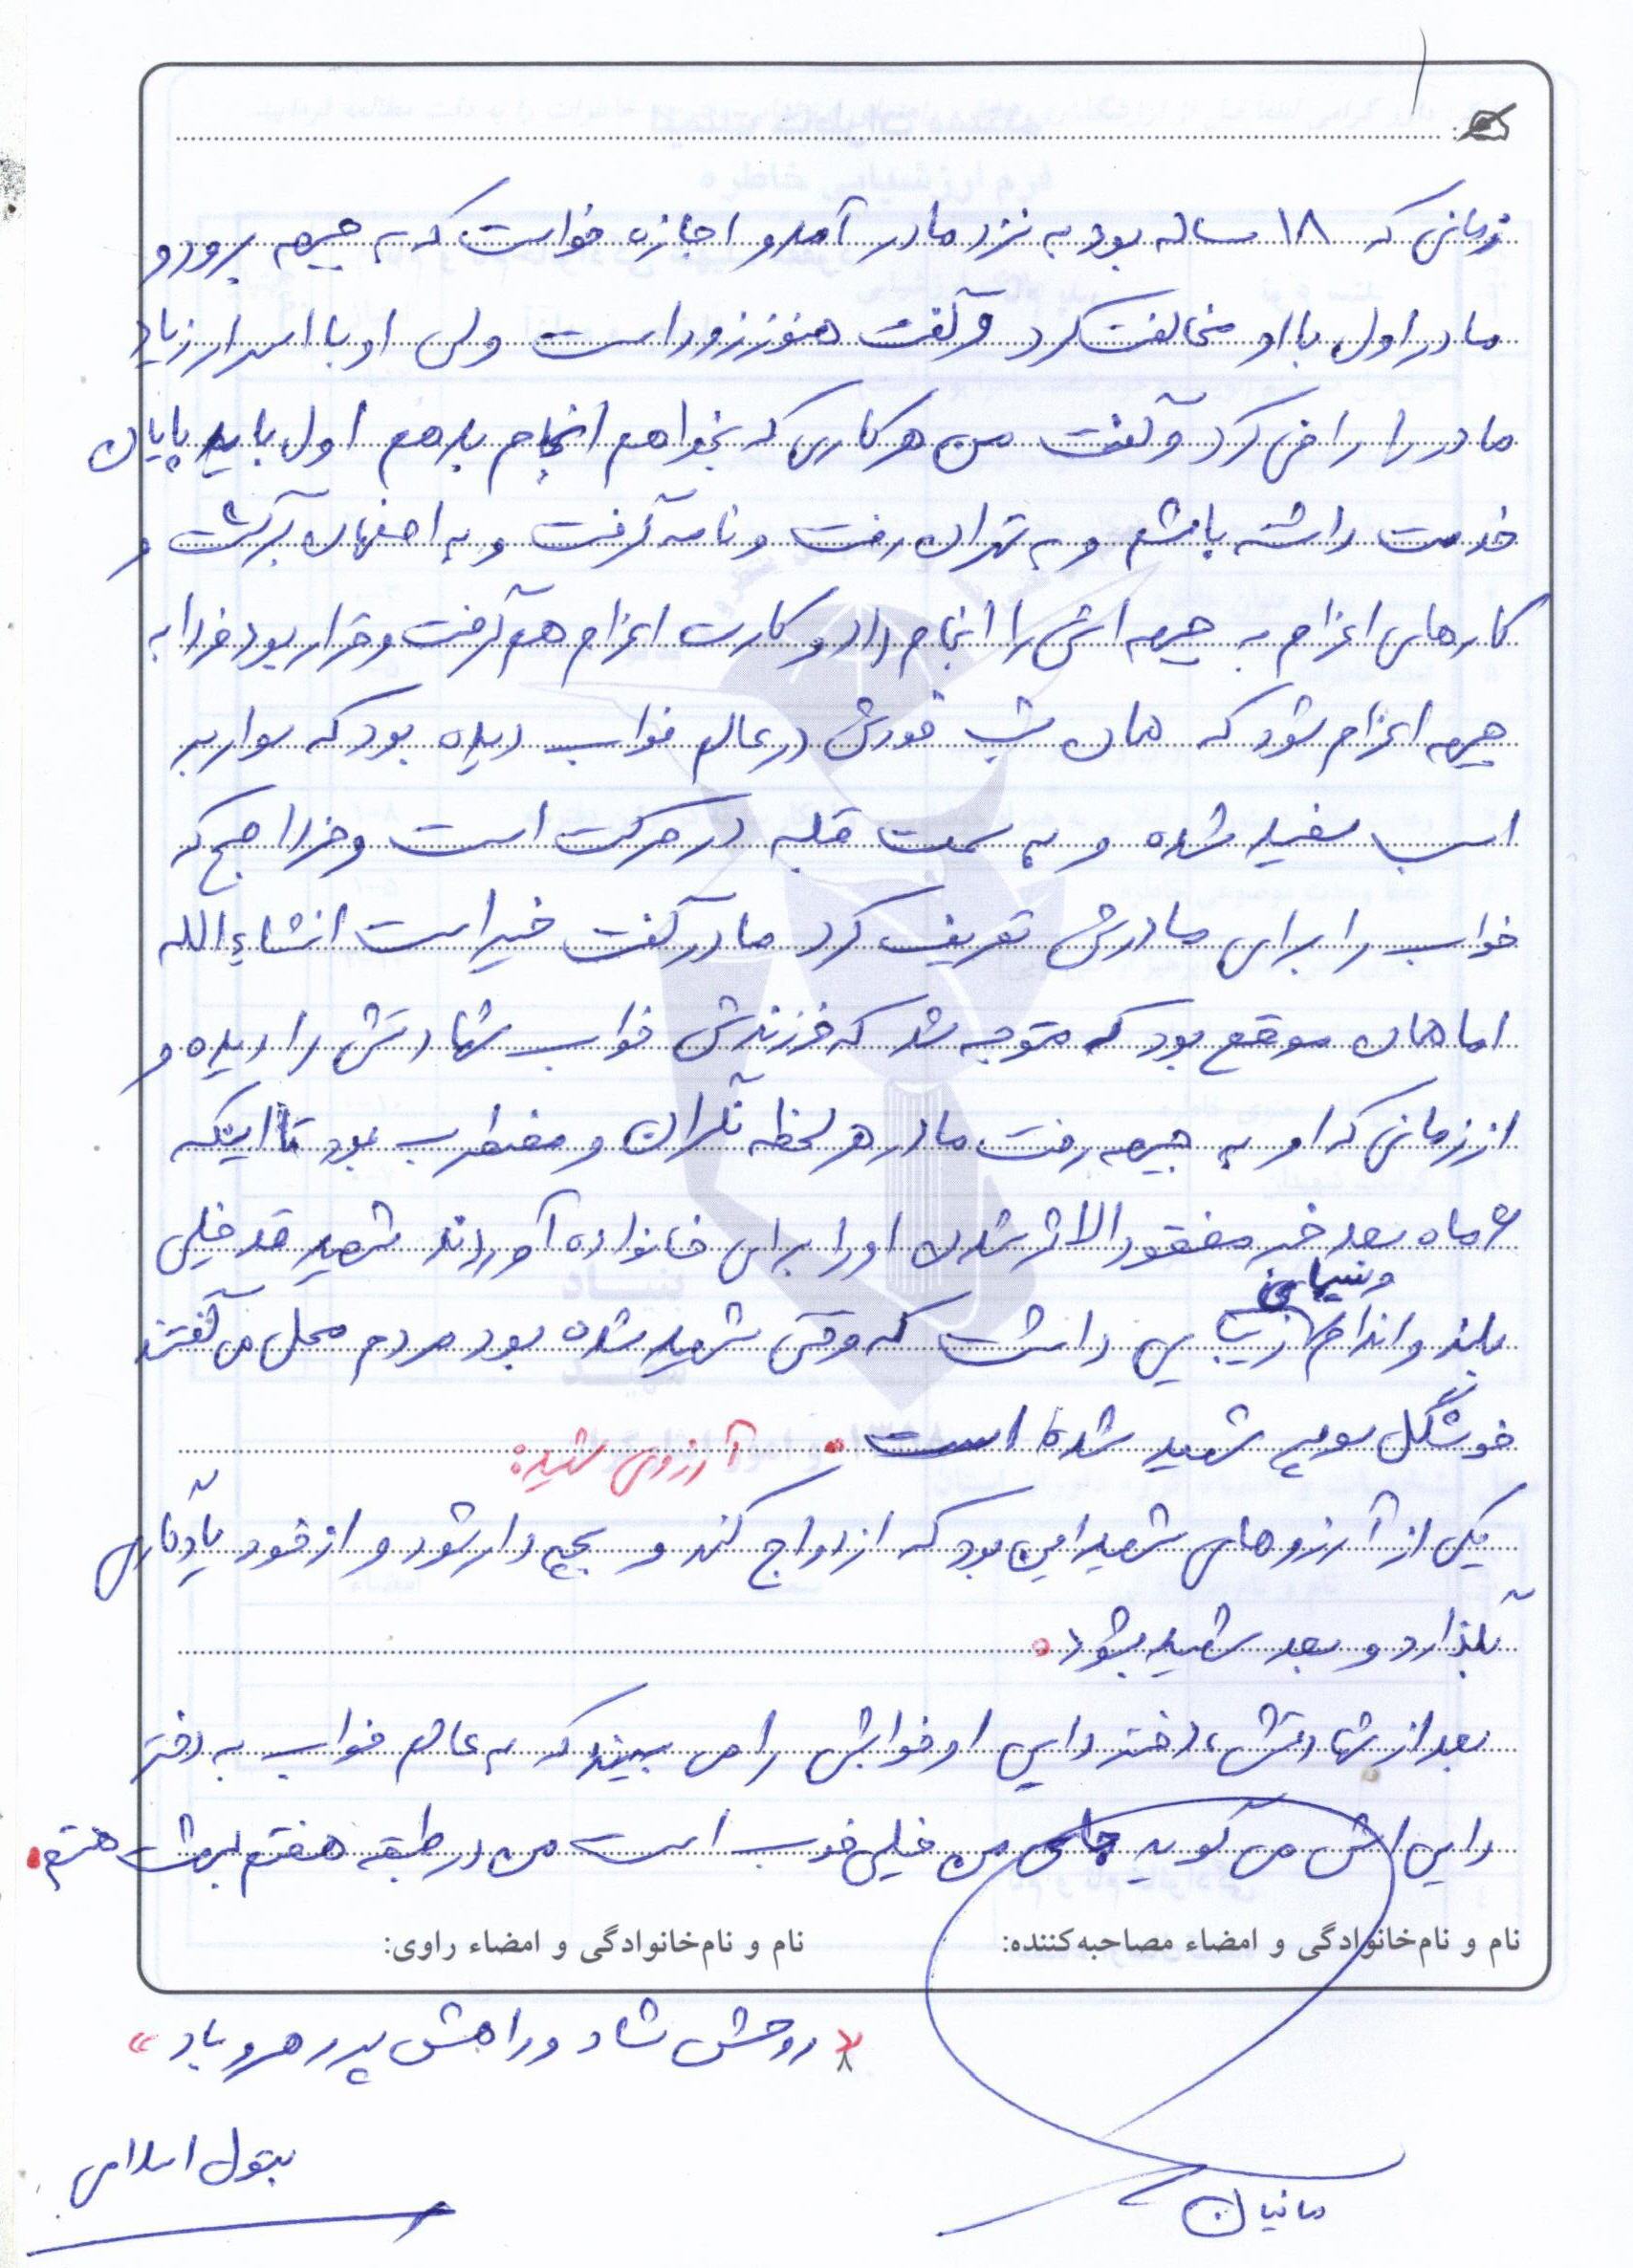 زمانی که ۱۸ ساله بود به نزد مادر آمد و اجازه خواست که به جبهه برود و
مادر اول با او مخالفت کرد و گفت هنوز زود است ولی او با اسرار زیاد
مادر را راضی کرد و گفت من هر کاری که بخواهم انجام بدهم اول باید پایان
خدمت داشته باشم و به تهران رفت و نامه گرفت و به اصفهان برگشت و
کارهای اعزام به جبهه اش را انجام داد و کارت اعزام هم گرفت و قرار بود فردا به
جبهه اعزام شود که همان شب خودش در عالم خواب دیده بود که سوار بر
اسب سفید شده و به سمت قبله در حرکت است و فردا صبح که
خواب را برای مادرش تعریف کرد مادر گفت خیر است انشاءالله
اما همان موقع بود که متوجه شد که فرزندش خواب شهادتش را دیده و
از زمانی که او به جبهه رفت مادر هر لحظه نگران و مضطرب بود تا اینکه
۶ ماه بعد خبر مفقودالاثر شدن او را برای خانواده آوردند شهید قد خیلی
بلند و اندام زیبایی داشت که وقتی شهید شده بود مردم محل می گفتند
خوشگل سومی شهید شده است.
آرزوی شهید:
یکی از آرزوهای شهید این بود که ازدواج کند و بچه دار شود و از خود یادگاری
بگذارد و بعد شهید بشود.
بعد از شهادتش، دختر دایی او خوابش را می بیند که به عالم خواب به دختر
دایی اش می گوید جای من خیلی خوب است من در طبقه هفتم بهشت هستم.
نام و نام‌خانوادگی و امضاء مصاحبه‌کننده: نام و نام‌خانوادگی و امضاء راوی:
روحش شاد و راهش پر رهرو باد»
بتول اسلامی
مانیان